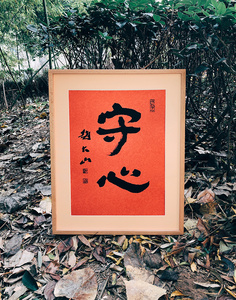 守心
赵大山